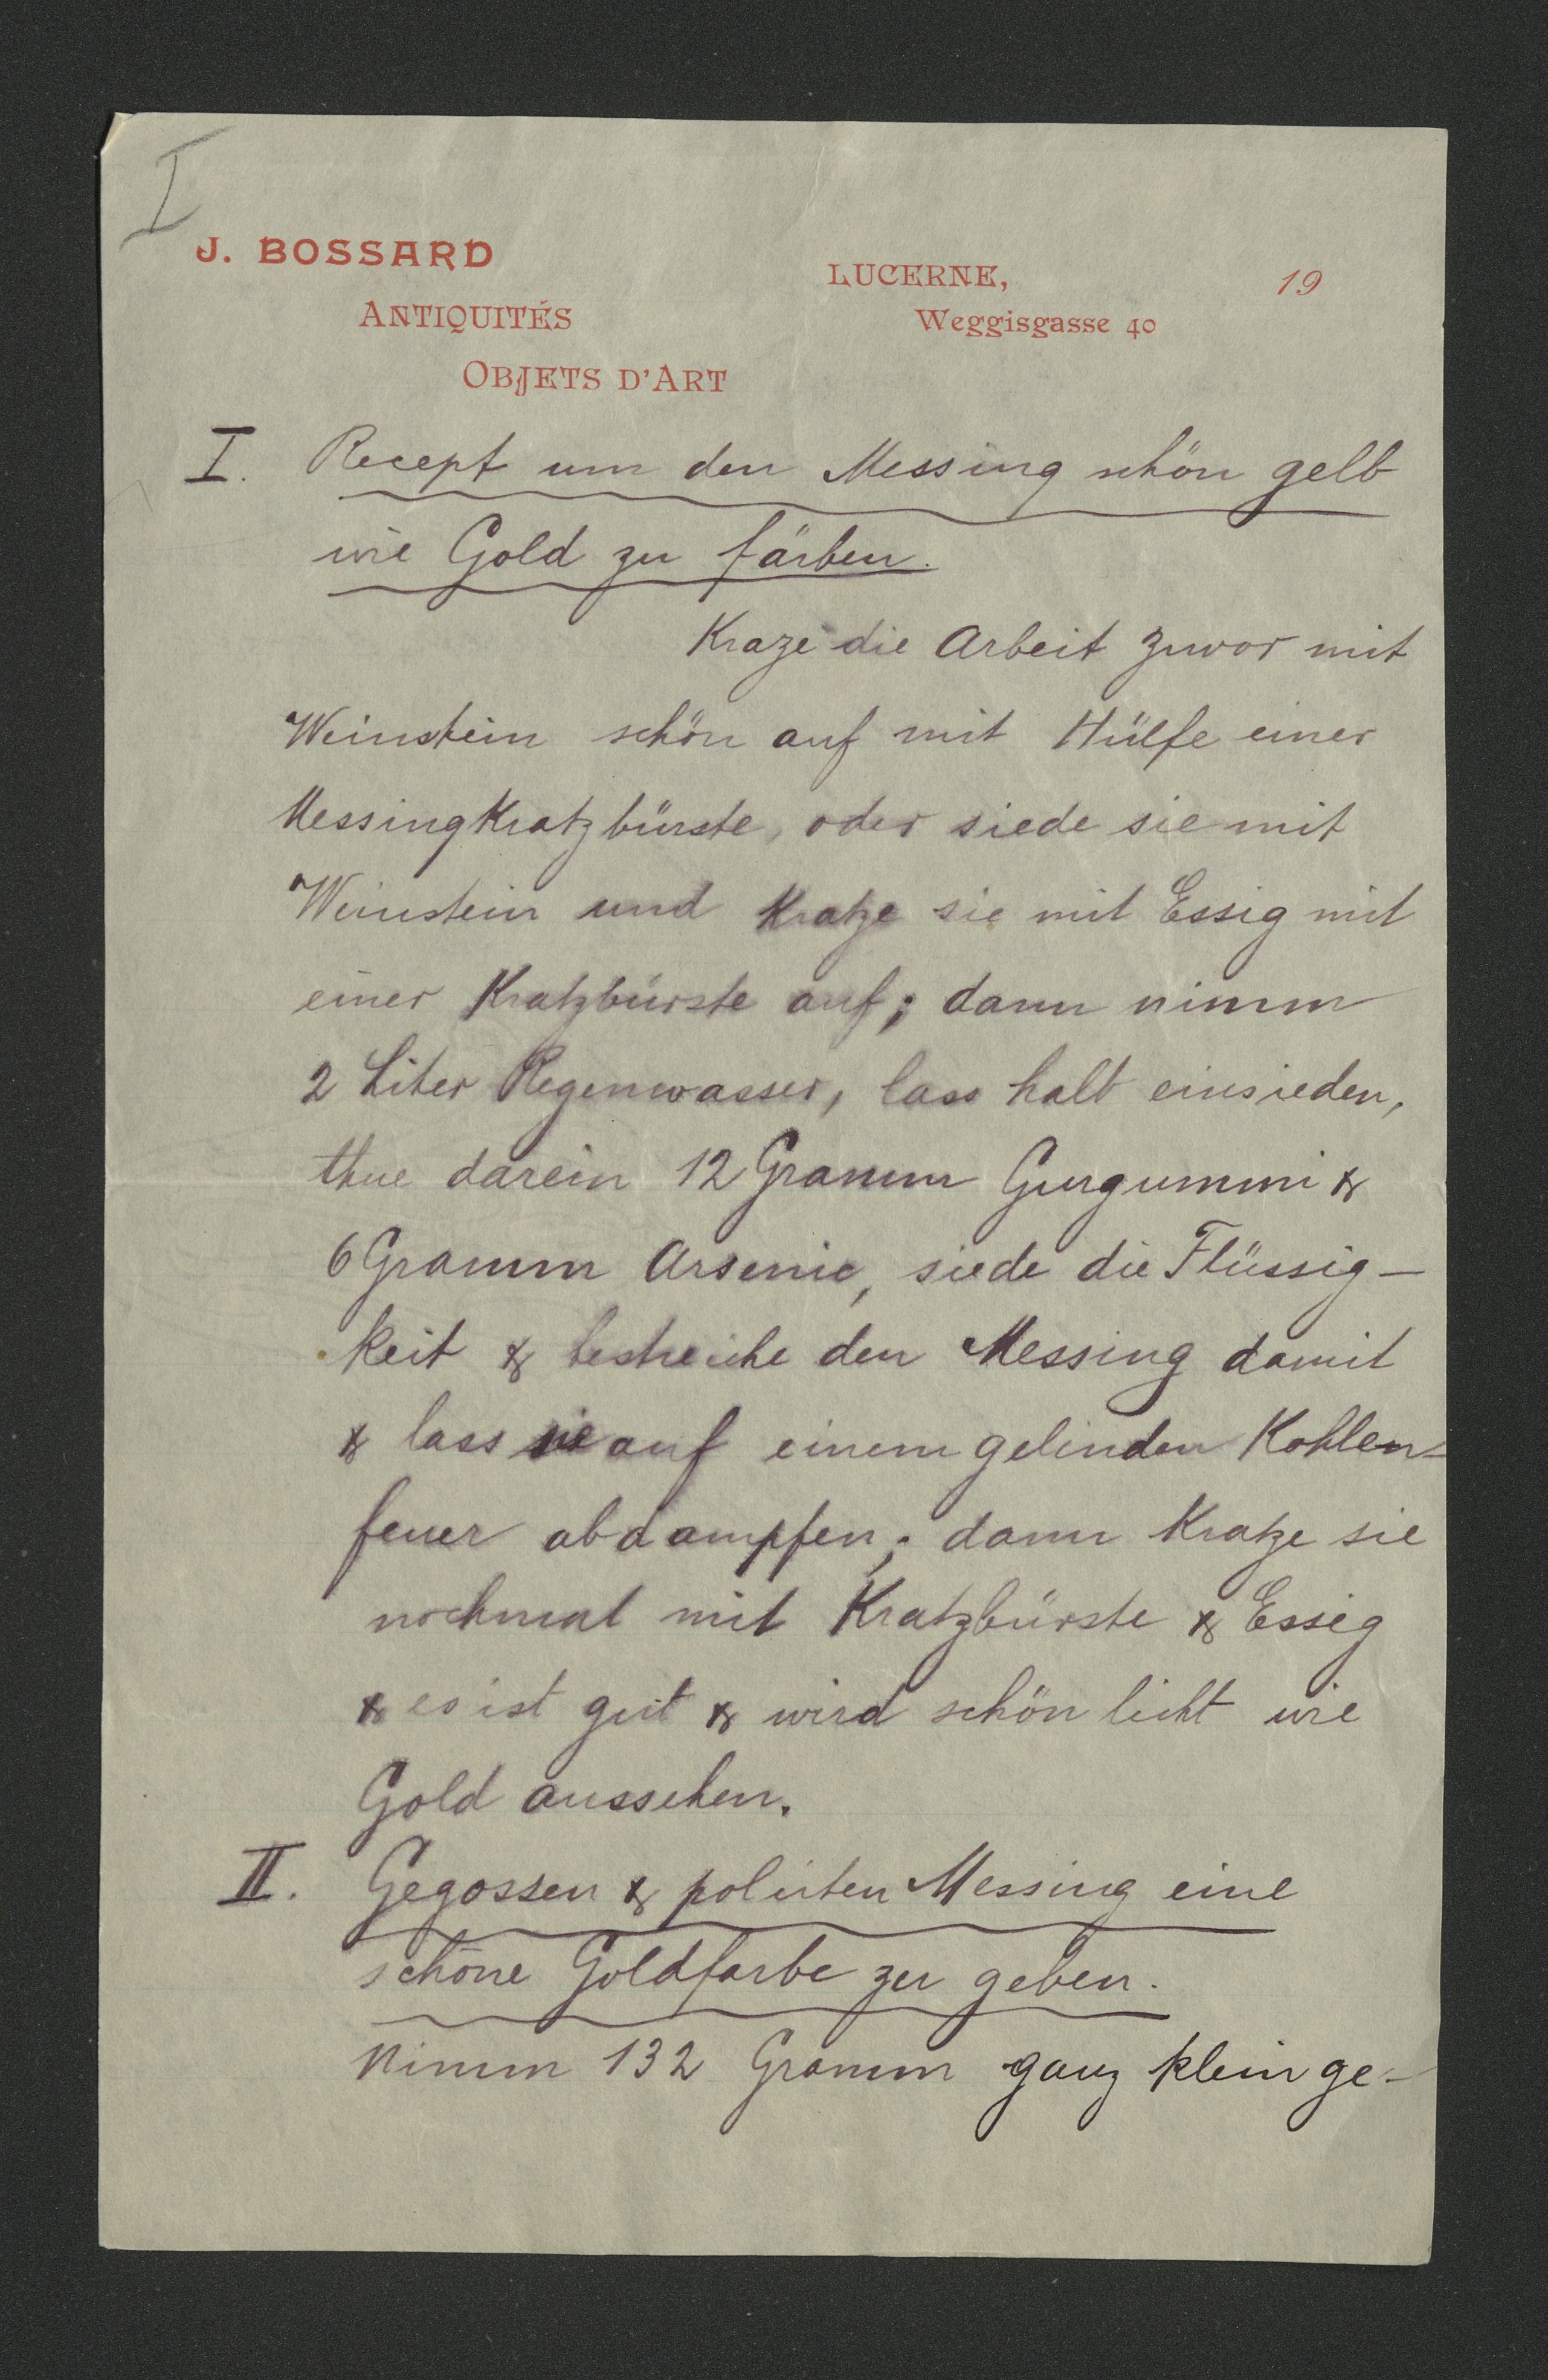 I
J. BOSSARD
ANTIQUITÉS
OBJETS D'ART
LUCERNE, 19
Weggisgasse 40
I. Recept um den Messing schön gelb
wie Gold zu färben.
Kraze die Arbeit zuvor mit
Weinstein schön auf mit Hülfe einer
Messingkratzbürste, oder siede sie mit
Weinstein und kratze sie mit Essig mit
einer Kratzbürste auf; dann nimm
2 Liter Regenwasser, lass halb einsieden,
thue darein 12 Gramm Gurgummi &
6 Gramm Arsenic, siede die Flüssig-
keit & bestreiche den Messing damit
& lass sie auf einem gelinden Kohlen-
feuer abdampfen; dann kratze sie
nochmal mit Kratzbürste & Essig
& es ist gut & wird schön licht wie
Gold aussehen.
II. Gegossen & polirten Messing eine
schöne Goldfarbe zu geben.
Nimm 132 Gramm ganz klein ge-